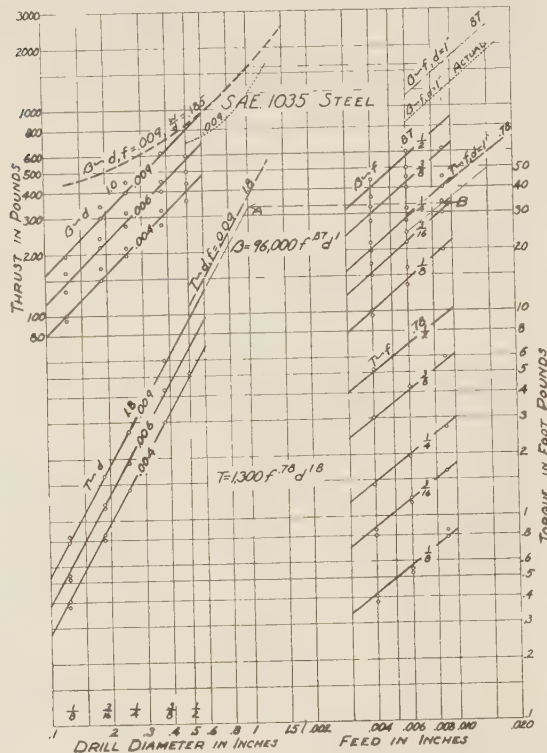 3000
2000
1000
800
600
500
400
300
200
100
80
THRUST IN POUNDS
SAE 1035 STEEL
B~d, f=.009
.185
.009
B~d
1.0
.009
.006
.004
T~d, f=.009
1.8
A
B=96,000 f .87 d 1
T~d
1.8
.009
.006
.004
T=1,300 f .78 d 1.8
B~f, d=1"
.87
B~f, d=1"
ACTUAL
B~f
.87
1/2
3/8
1/4
3/16
1/8
T~f, d=1"
.78
B
T~f
.78
1/2
3/8
1/4
3/16
1/8
50
40
30
20
10
8
6
5
4
3
2
1
.8
.6
.5
.4
.3
.2
.1
TORQUE IN FOOT POUNDS
1/8
3/16
1/4
3/8
1/2
.1
.2
.3
.4
.5
.6
.8
1
1.5
.002
.004
.006
.008
.010
.020
DRILL DIAMETER IN INCHES
FEED IN INCHES